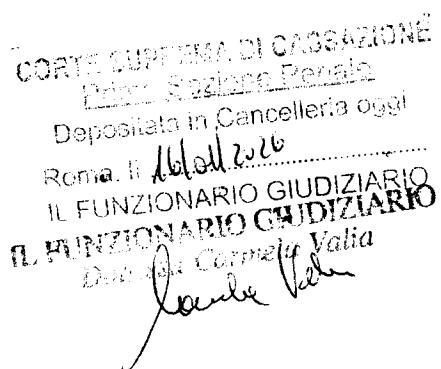 CORTE SUPREMA DI CASSAZIONE
Prima Sezione Penale
Depositata in Cancelleria oggi
Roma, li 16/01/2026
IL FUNZIONARIO GIUDIZIARIO
IL FUNZIONARIO GIUDIZIARIO
Carmela Valia